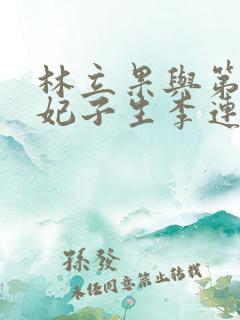 林立果與第
妃子生李連
孫發
未任同意禁止轉載